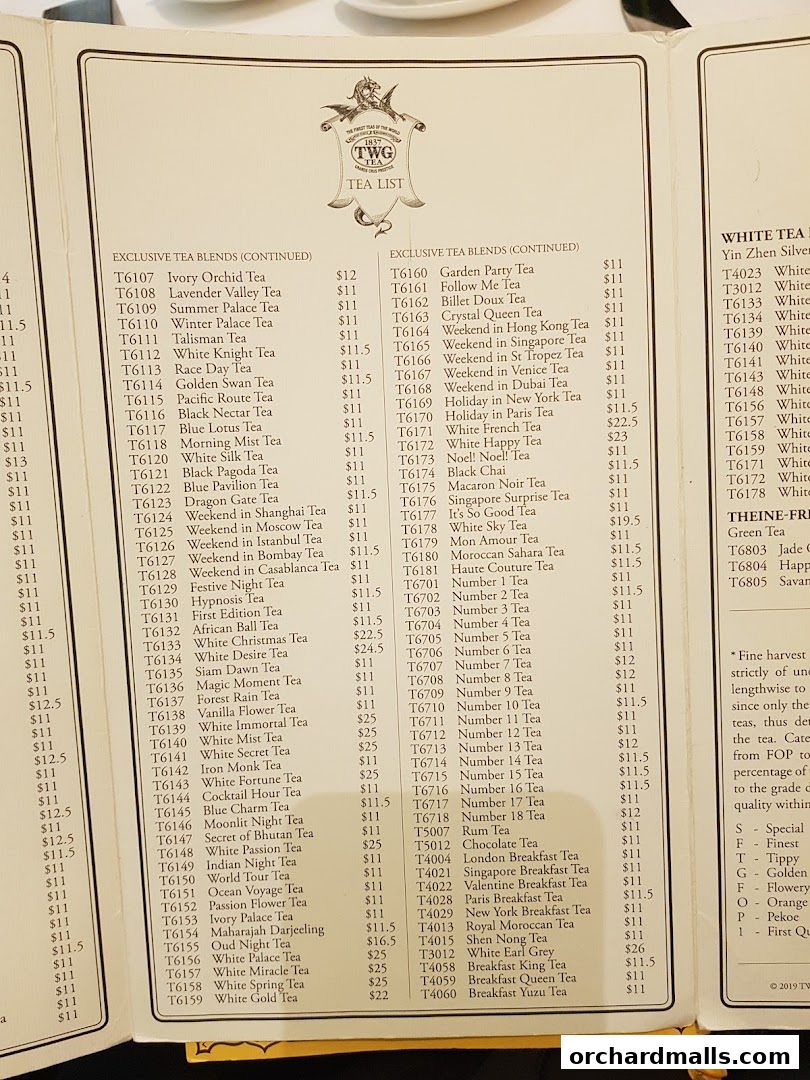 $11.5
$11
$11
$11
$11
$13
$11
$11
$11
$11
$11
$11
$11
$11
$11
$11
$11
$11.5
$11
$11
$11
$11
$12.5
$11
$11
$11
$12.5
$11
$11
$11
$12.5
$11
$12.5
$11.5
$11
$11
$11
$11
$11
$11
$11.5
$11
$11
$11
$11
$11
THE FINEST TEAS OF THE WORLD
1837
TWG
TEA
GRANDS CRUS PRESTIGE
TEA LIST
EXCLUSIVE TEA BLENDS (CONTINUED)
T6107 Ivory Orchid Tea $12
T6108 Lavender Valley Tea $11
T6109 Summer Palace Tea $11
T6110 Winter Palace Tea $11
T6111 Talisman Tea $11
T6112 White Knight Tea $11.5
T6113 Race Day Tea $11
T6114 Golden Swan Tea $11.5
T6115 Pacific Route Tea $11
T6116 Black Nectar Tea $11
T6117 Blue Lotus Tea $11
T6118 Morning Mist Tea $11.5
T6120 White Silk Tea $11
T6121 Black Pagoda Tea $11
T6122 Blue Pavilion Tea $11
T6123 Dragon Gate Tea $11.5
T6124 Weekend in Shanghai Tea $11
T6125 Weekend in Moscow Tea $11
T6126 Weekend in Istanbul Tea $11
T6127 Weekend in Bombay Tea $11.5
T6128 Weekend in Casablanca Tea $11
T6129 Festive Night Tea $11
T6130 Hypnosis Tea $11.5
T6131 First Edition Tea $11
T6132 African Ball Tea $11.5
T6133 White Christmas Tea $22.5
T6134 White Desire Tea $24.5
T6135 Siam Dawn Tea $11
T6136 Magic Moment Tea $11
T6137 Forest Rain Tea $11
T6138 Vanilla Flower Tea $11
T6139 White Immortal Tea $25
T6140 White Mist Tea $25
T6141 White Secret Tea $25
T6142 Iron Monk Tea $11
T6143 White Fortune Tea $25
T6144 Cocktail Hour Tea $11
T6145 Blue Charm Tea $11.5
T6146 Moonlit Night Tea $11
T6147 Secret of Bhutan Tea $11
T6148 White Passion Tea $25
T6149 Indian Night Tea $11
T6150 World Tour Tea $11
T6151 Ocean Voyage Tea $11
T6152 Passion Flower Tea $11
T6153 Ivory Palace Tea $11
T6154 Maharajah Darjeeling $11.5
T6155 Oud Night Tea $16.5
T6156 White Palace Tea $25
T6157 White Miracle Tea $25
T6158 White Spring Tea $25
T6159 White Gold Tea $22
EXCLUSIVE TEA BLENDS (CONTINUED)
T6160 Garden Party Tea $11
T6161 Follow Me Tea $11
T6162 Billet Doux Tea $11
T6163 Crystal Queen Tea $11
T6164 Weekend in Hong Kong Tea $11
T6165 Weekend in Singapore Tea $11
T6166 Weekend in St Tropez Tea $11
T6167 Weekend in Venice Tea $11
T6168 Weekend in Dubai Tea $11
T6169 Holiday in New York Tea $11
T6170 Holiday in Paris Tea $11.5
T6171 White French Tea $22.5
T6172 White Happy Tea $23
T6173 Noel! Noel! Tea $11
T6174 Black Chai $11.5
T6175 Macaron Noir Tea $11
T6176 Singapore Surprise Tea $11
T6177 It's So Good Tea $11
T6178 White Sky Tea $19.5
T6179 Mon Amour Tea $11
T6180 Moroccan Sahara Tea $11.5
T6181 Haute Couture Tea $11.5
T6701 Number 1 Tea $11
T6702 Number 2 Tea $11.5
T6703 Number 3 Tea $11
T6704 Number 4 Tea $11
T6705 Number 5 Tea $11
T6706 Number 6 Tea $11
T6707 Number 7 Tea $12
T6708 Number 8 Tea $12
T6709 Number 9 Tea $11
T6710 Number 10 Tea $11.5
T6711 Number 11 Tea $11
T6712 Number 12 Tea $11
T6713 Number 13 Tea $12
T6714 Number 14 Tea $11.5
T6715 Number 15 Tea $11.5
T6716 Number 16 Tea $11.5
T6717 Number 17 Tea $11
T6718 Number 18 Tea $12
T5007 Rum Tea $11
T5012 Chocolate Tea $11
T4004 London Breakfast Tea $11
T4021 Singapore Breakfast Tea $11
T4022 Valentine Breakfast Tea $11
T4028 Paris Breakfast Tea $11.5
T4029 New York Breakfast Tea $11
T4013 Royal Moroccan Tea $11
T4015 Shen Nong Tea $11
T3012 White Earl Grey $26
T4058 Breakfast King Tea $11.5
T4059 Breakfast Queen Tea $11
T4060 Breakfast Yuzu Tea $11
WHITE TEA
Yin Zhen Silver
T4023 White
T3012 White
T6133 White
T6134 White
T6139 White
T6140 White
T6141 White
T6143 White
T6148 White
T6156 White
T6157 White
T6158 White
T6159 White
T6171 White
T6172 White
T6178 White
THEINE-FR
Green Tea
T6803 Jade
T6804 Happ
T6805 Savan
* Fine harvest
strictly of
lengthwise to
since only the
teas, thus
the tea. Cate
from FOP to
percentage of
to the grade
quality within
S - Special
F - Finest
T - Tippy
G - Golden
F - Flowery
O - Orange
P - Pekoe
1 - First Qu
© 2019 TW
orchardmalls.com